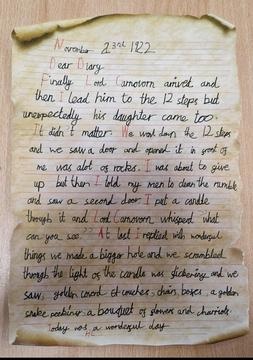 November 23rd 1922
Dear Diary
Finally Lord Canovorn arrived and
then I lead him to the 12 steps but
unexpectedly his daughter came too.
It didn't matter. We went down the 12 steps
and we saw a door and opened it in front of
me was alot of rocks. I was about to give
up but then I told my men to clean the rumble
and saw a second door I put a candle
through it and Lord Canovorn whisped what
can you see?? At last I replied with wonderful
things we made a bigger hole and we scrambled
through the light of the candle was flickering and we
saw, golden coverd couches, chain, boxes, a golden
snake a bouquet of flowers and charriots.
Today was a wonderful day